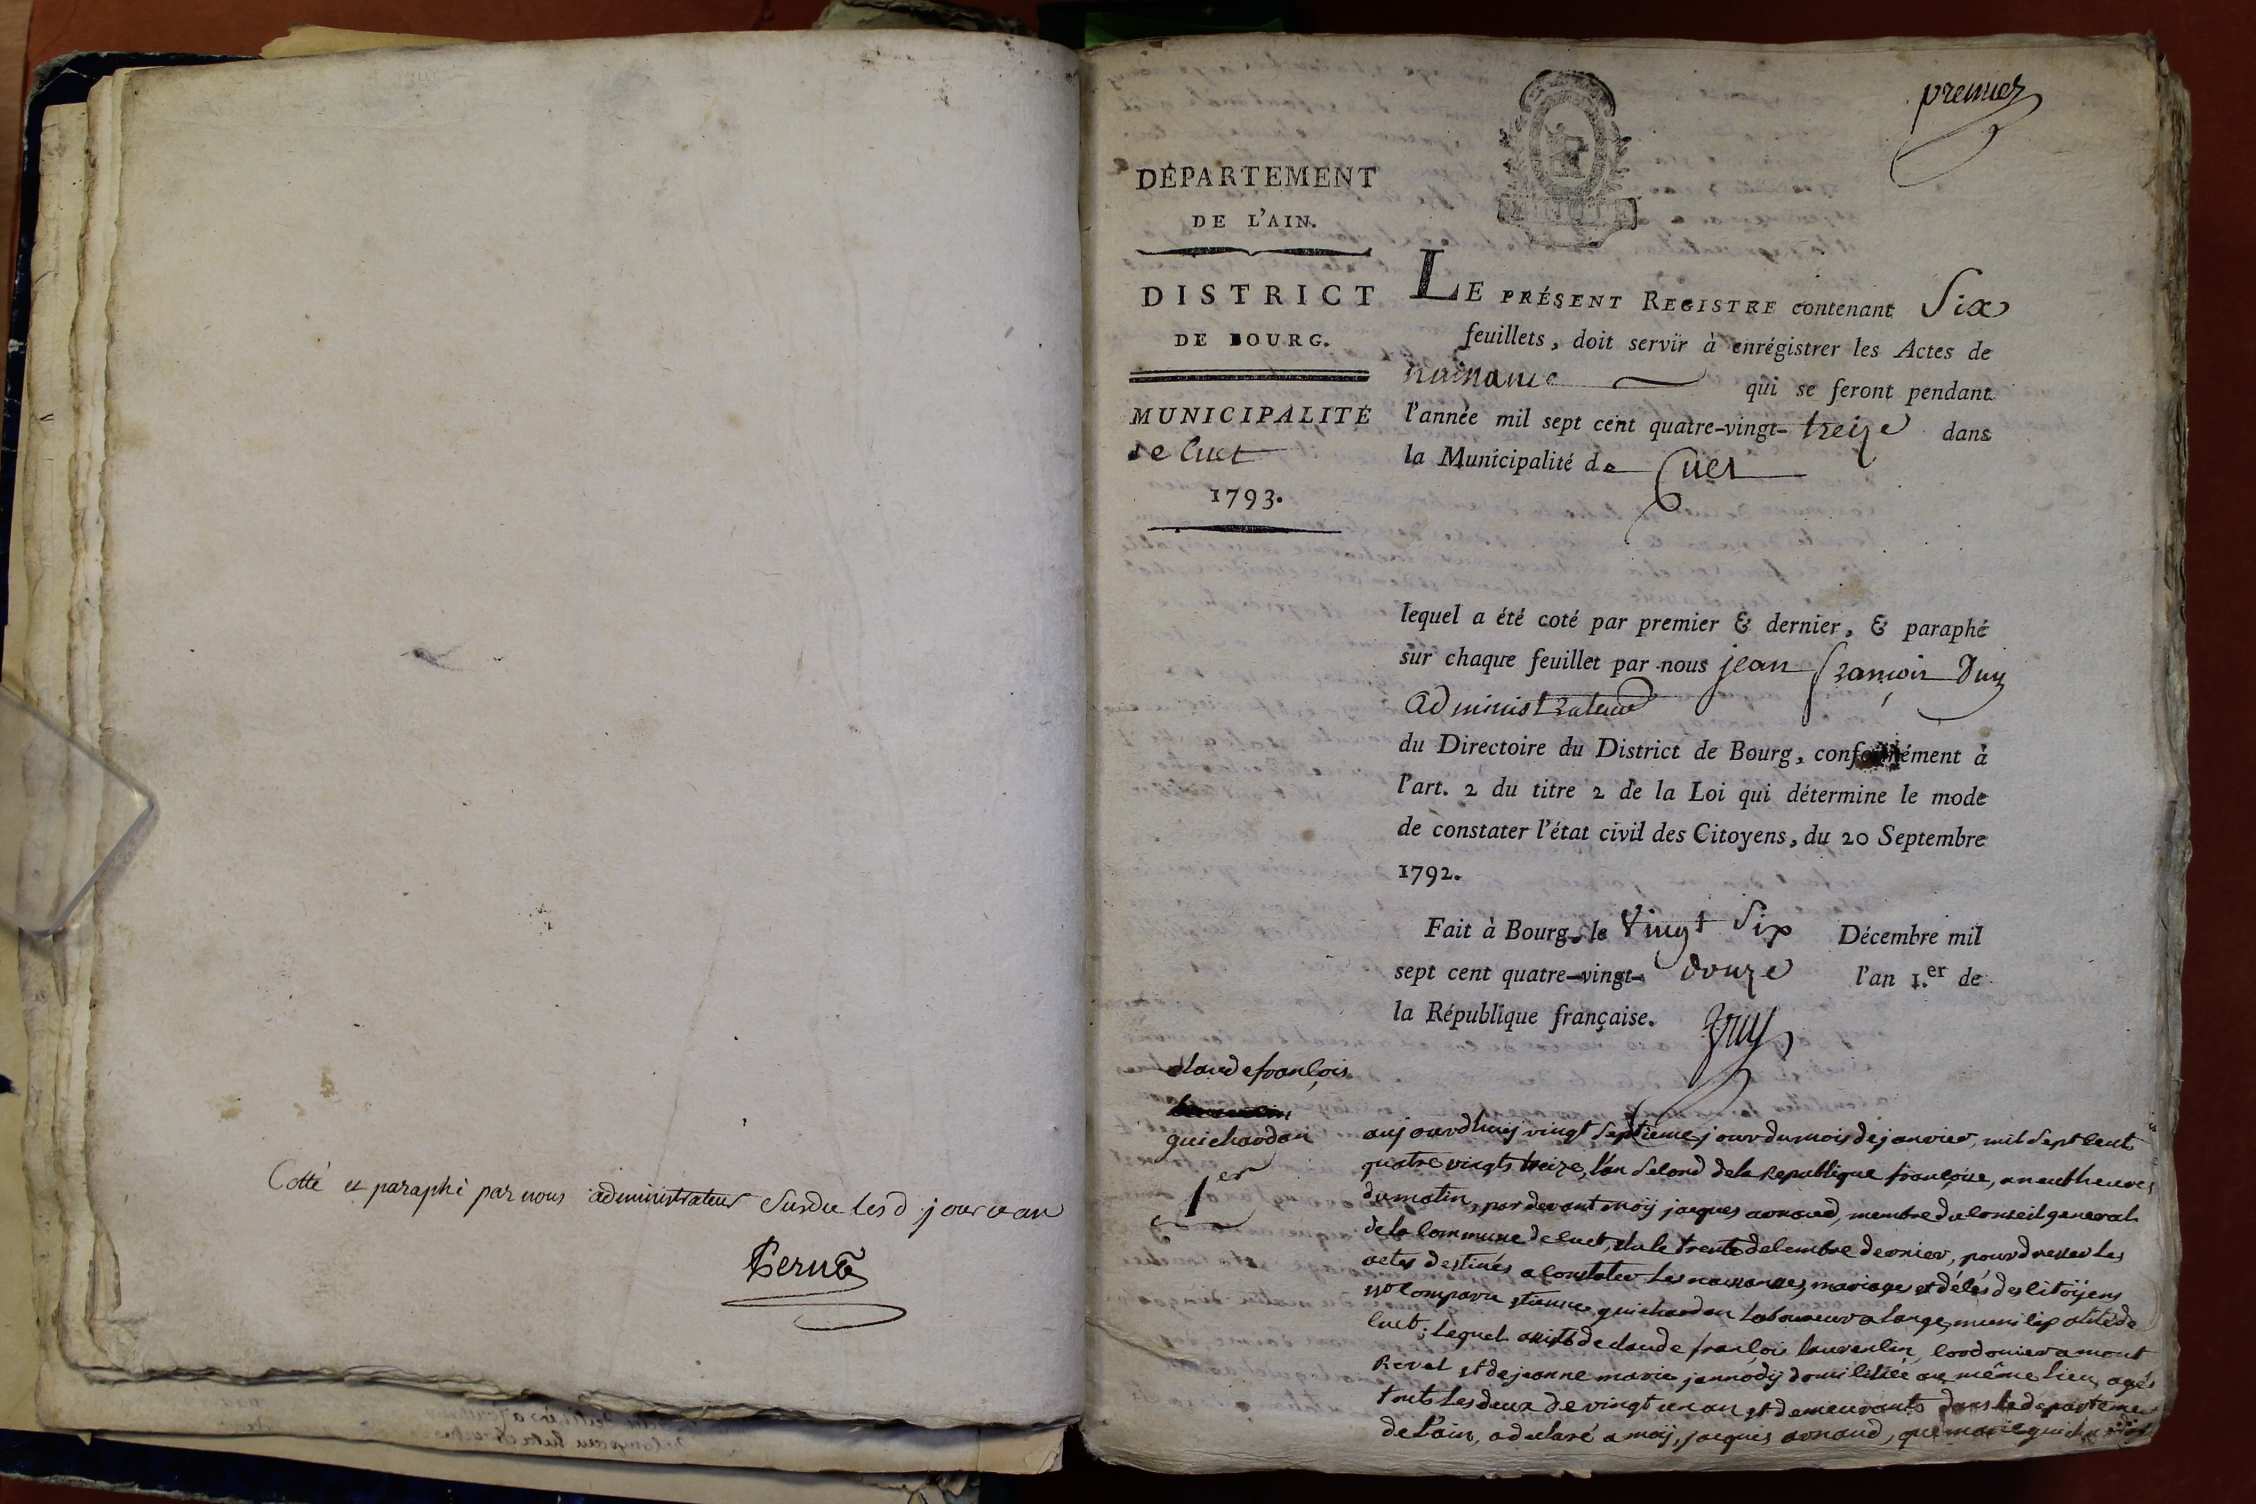 Cotté et paraphé par nous administrateur Susdit les d jour et an
premier
DÉPARTEMENT
DE L'AIN.
DISTRICT
DE BOURG.
MUNICIPALITÉ
de Cuet
1793.
LE PRÉSENT REGISTRE contenant Six
feuillets, doit servir à enrégistrer les Actes de
naissance qui se feront pendant
l'année mil sept cent quatre-vingt-treize dans
la Municipalité de Cuet
lequel a été coté par premier & dernier, & paraphé
sur chaque feuillet par nous jean françois Duy
Administrateur
du Directoire du District de Bourg, conformément à
l'art. 2 du titre 2 de la Loi qui détermine le mode
de constater l'état civil des Citoyens, du 20 Septembre
1792.
Fait à Bourg, le Vingt Six Décembre mil
sept cent quatre-vingt-douze l'an 1.er de
la République française.
claude françois
guichardan
1er
aujourdhuij vingt septieme jour du mois de janvier, mil sept cent
quatre vingts treize, l'an second de la Republique françoise, a neuf heures
du matin, par devant moij jacques arnaud, membre du conseil general
de la commune de cuet, élu le trente decembre dernier, pour dresser les
actes destinés a constater les naissances, mariages et décés des citoijens
est comparu etienne guichardan laboureur a lange, municipalité de
Cuet; lequel assisté de claude françois laurencin, cordonier a mont
Revel et de jeanne marie jannodij domiciliée au même lieu, agés
touts les deux de vingt un an et demeurants dans le departeme
de l'ain, a declaré a moij, jacques arnaud, que marie